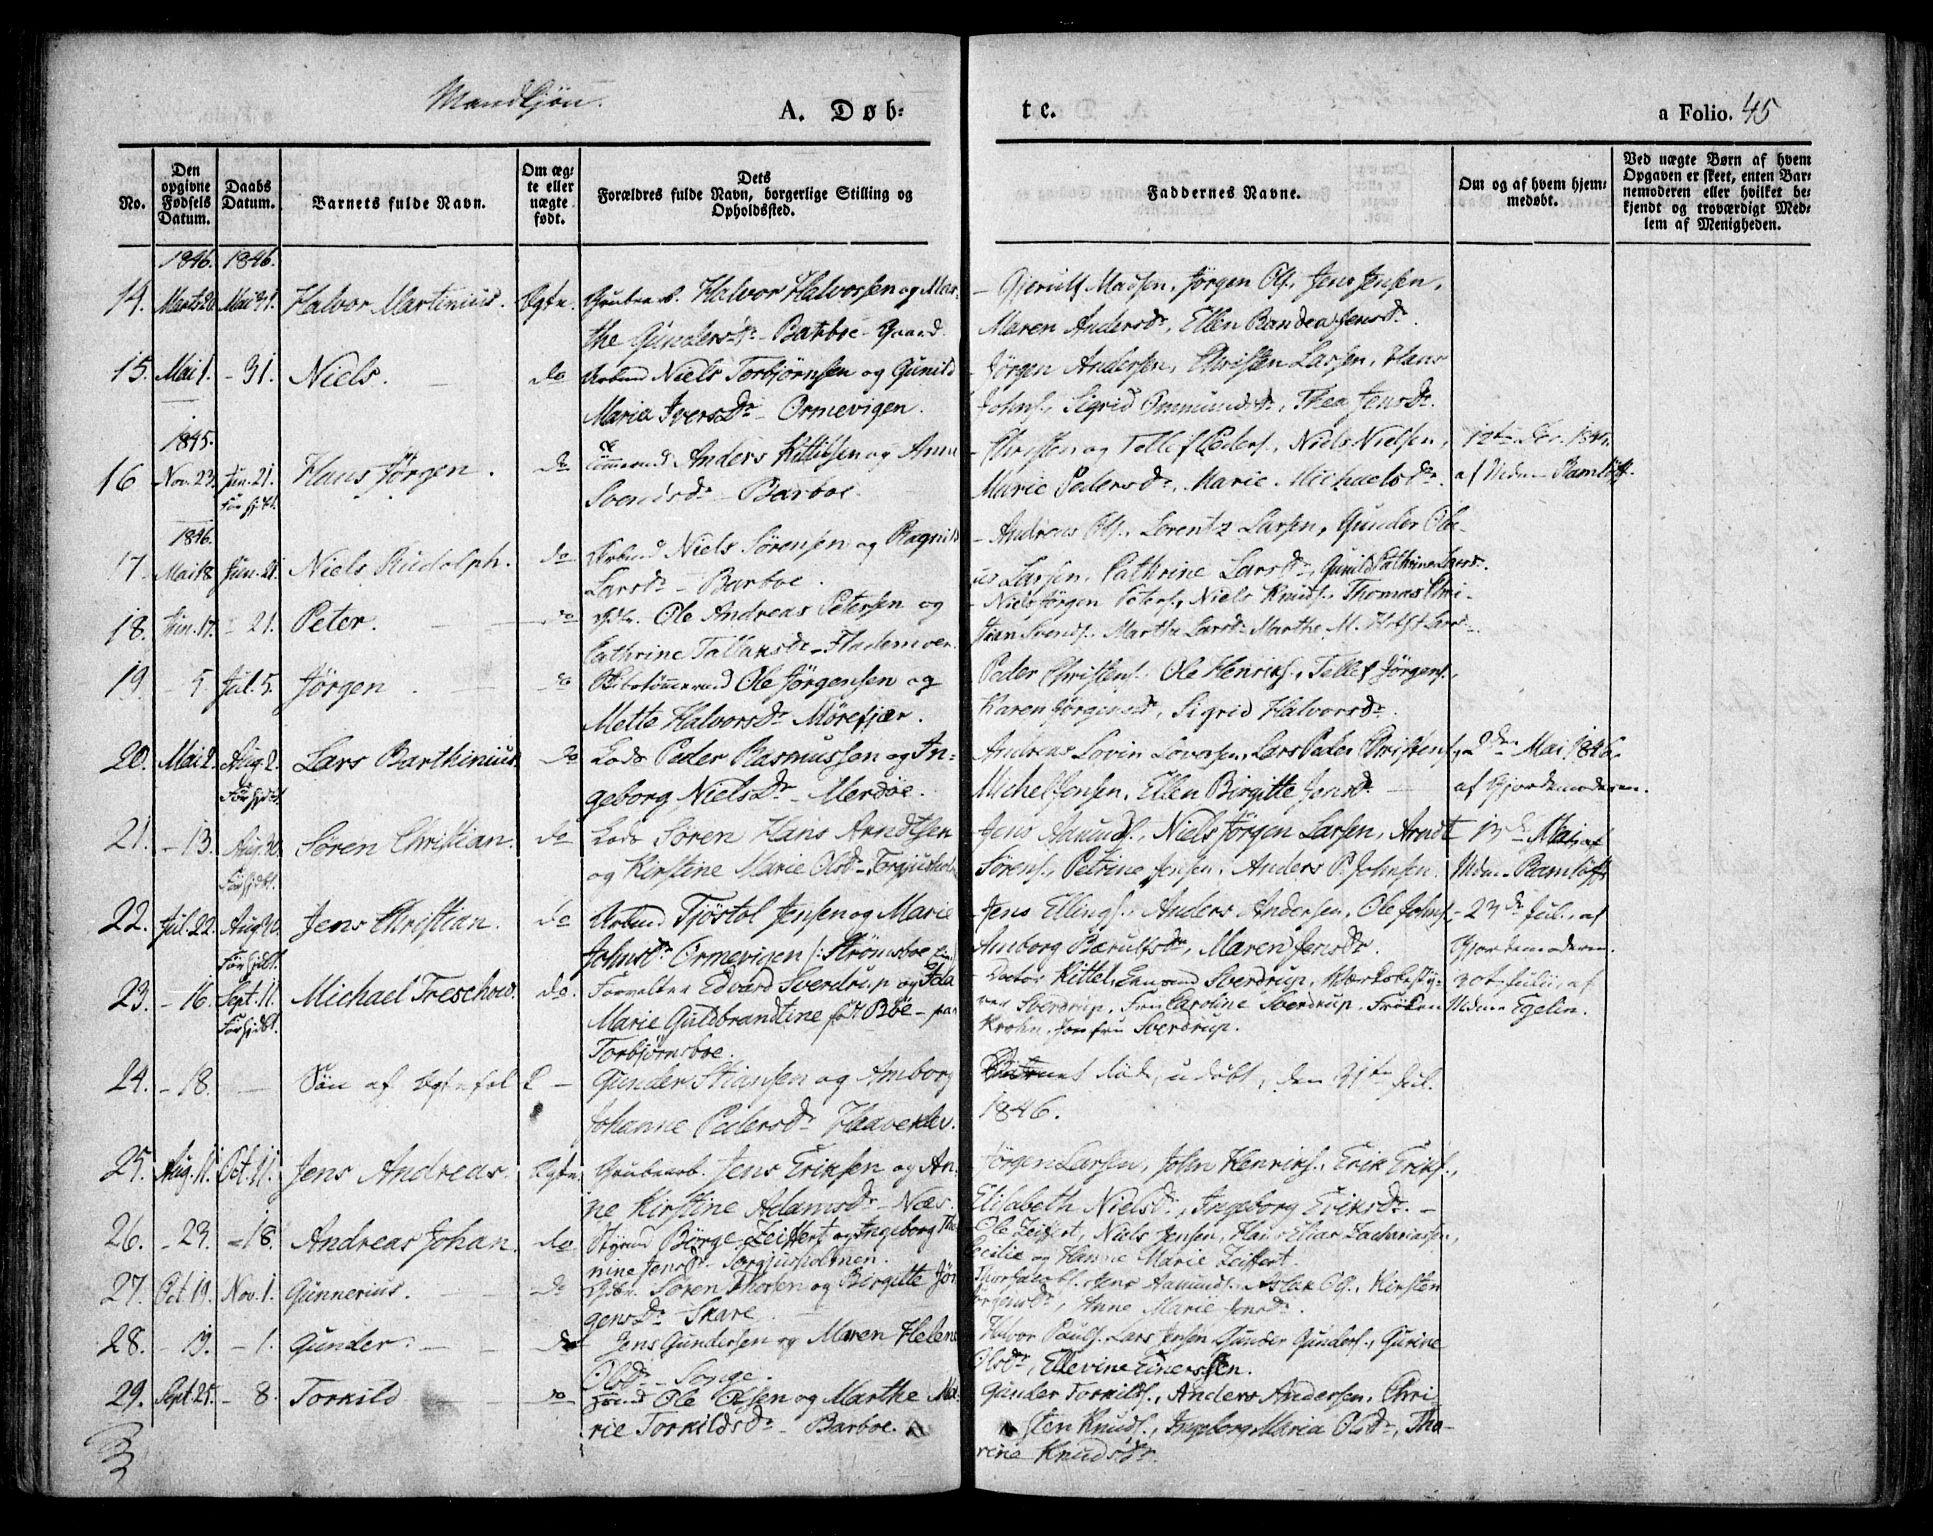 Mandkjön.
A. Døb-
tc.
a Folio. 45
No.
Den opgivne Fødsels Datum.
Daabs Datum.
Barnets fulde Navn.
Om ægte eller nægte født.
Dets Forældres fulde Navn, borgerlige Stilling og Opholdssted.
Faddernes Navne.
Om og af hvem hjemmedøbt.
Ved nægte Børn af hvem Opgaven er skeet, enten Barnemoderen eller hvilket bekjendt og troværdigt Medlem af Menigheden.
1846. 1846.
14. Marts 20 Mai 31. Halvor Martinius. Ægte. Grubearb. Halvor Halvorsen og Mar-
the Gundersdr Barboe-Gaard.
- Gjerulf Madsen, Jörgen Ols., Jens Jensen,
Maren Andersdr, Ellen Jensdr.
15. Mai 1. - 31. Niels. do Arbmd Niels Torbjörnsen og Gunild
Maria Iversdr - Ormevigen.
Jörgen Andersen, Christen Larsen, Hans
Johns., Sigrid Ommundsdr, Thea Jensdr.
1845.
16 Nov. 23. Jun. 21. Hans Jörgen. do Tömmermd Anders Kittilsen og Anne
för hjdt.
Svendsdr - Barboe.
- Christen og Tellef Peders., Niels Nielsen,
Marie Pedersdr, Marie Michaelsdr.
12te Dec. 1845.
af Mdme Ramlöff.
1846.
17 Mai 18. Jun. 21. Niels Rudolph. do Arbmd Niels Sörensen og Ragnild
Larsdr - Barboe.
- Andreas Ols., Lorentz Larsen, Gunder Ole-
us Larsen, Cathrine Larsdr, Gunild Cathrine Larsd.
18. Jun. 17. - 21. Peter. do Ole Andreas Petersen og
Cathrine Tallaksdr - Flademoen.
- Niels Jörgen Peters., Niels Knuds., Thomas Chri-
stian Svends., Marthe Larsdr Marthe M. Holst Larsdr.
19. - 5. Jul. 5. Jörgen do Skibstömmermd Ole Jörgensen og
Mette Halvorsdr Mörefjær.
Peder Christens., Ole Henriks., Tellef Jörgens.,
Karen Jörgensdr, Sigrid Halvorsdr.
20. Mai 2. Aug. 2. Lars Barthinius do Lods Peder Rasmussen og In-
För hjdt.
geborg Nielsdr - Merdöe.
Andreas Lovin Loversen, Lars Peder Christens.,
Michel Jensen, Ellen Birgitte Jensdr
2den Mai 1846.
af Gjordemoderen.
21. - 13. Aug. 30. Sören Christian. do Lods Sören Hans Arndtsen
För hjdt.
og Kirstine Marie Olsdr - Torgjusholm
Jens Amunds., Niels Jörgen Larsen, Arndt
Sörens., Petrine Jensen, Anders P. Johnsen.
13de Mai af
Mdme Ramlöff
22. Jul. 22. Aug. 30. Jens Christian. do Arbmd Tjöstol Jensen og Marie
För hjdt.
Johnsdr Ormevigen /: Strömsboe
- Jens Ellings., Anders Andersen, Ole Johns.
Amborg Bærulfsdr, Maren Jensdr.
- 23de Jul., af
Gjordemoderen.
23. - 16. Sept. 11. Michael Treschow. do. Forvalter Edvard Sverdrup og Ida
För hjdt.
Marie Guldbrandtine född Böe - paa
Torbjörnsboe.
- Doctor Kittel, Sverdrup, Værksbesty-
rer Sverdrup, Fru Caroline Sverdrup, Fröken
Krohn, Jomfru Sverdrup.
30te Julii, af
Mdme Egelin.
24. - 18. Sön af Ægtefol- - Gunder Stiansen og Amborg
Johanne Pedersdr Haaverstø.
Barnet döde, udöbt, den 31te Jul.
1846.
25. Aug. 11. Oct. 11. Jens Andreas. Ægte, Grubearb. Jens Eriksen og An-
ne Kirstine Adamsdr - Næs.
Jörgen Larsen, John Henriks., Erik Eriks.,
Elisabeth Nielsdr, Ingeborg Eriksdr. -
26. - 23. - 18. Andreas Johan. do Styrmd Börge Zeiffert og Ingeborg Tho-
nine Jensdr - Torgjusholmen.
Ole Zeiffert, Niels Jensen, Hans Elias Zachariassen,
Cecilie og Hanne Marie Zeiffert.
27. Oct. 19. Nov. 1. Gunnerius. do Sören Thorsen og Birgitte Jör-
gensdr - Skare.
Thor Jacobs., Jens Aamunds., Aslak Ols., Kirsten
Jörgensdr, Anne Marie Jensdr.
28. - 13. - 1. Gunder. do Jens Gundersen og Maren Helene
Olsdr - Songe.
Halvor Pauls. Lars Jensen Gunder Gunders., Gurine
Olsdr, Ellevine Einerssen.
29. Sept. 25. - 8. Torkild do Ole Olsen og Marthe Ma-
rie Torkildsdr - Barboe.
Gunder Torkilds., Anders Andersen, Chri-
sten Knuds., Ingeborg Maria Olsdr, Tho-
rine Knudsdr.